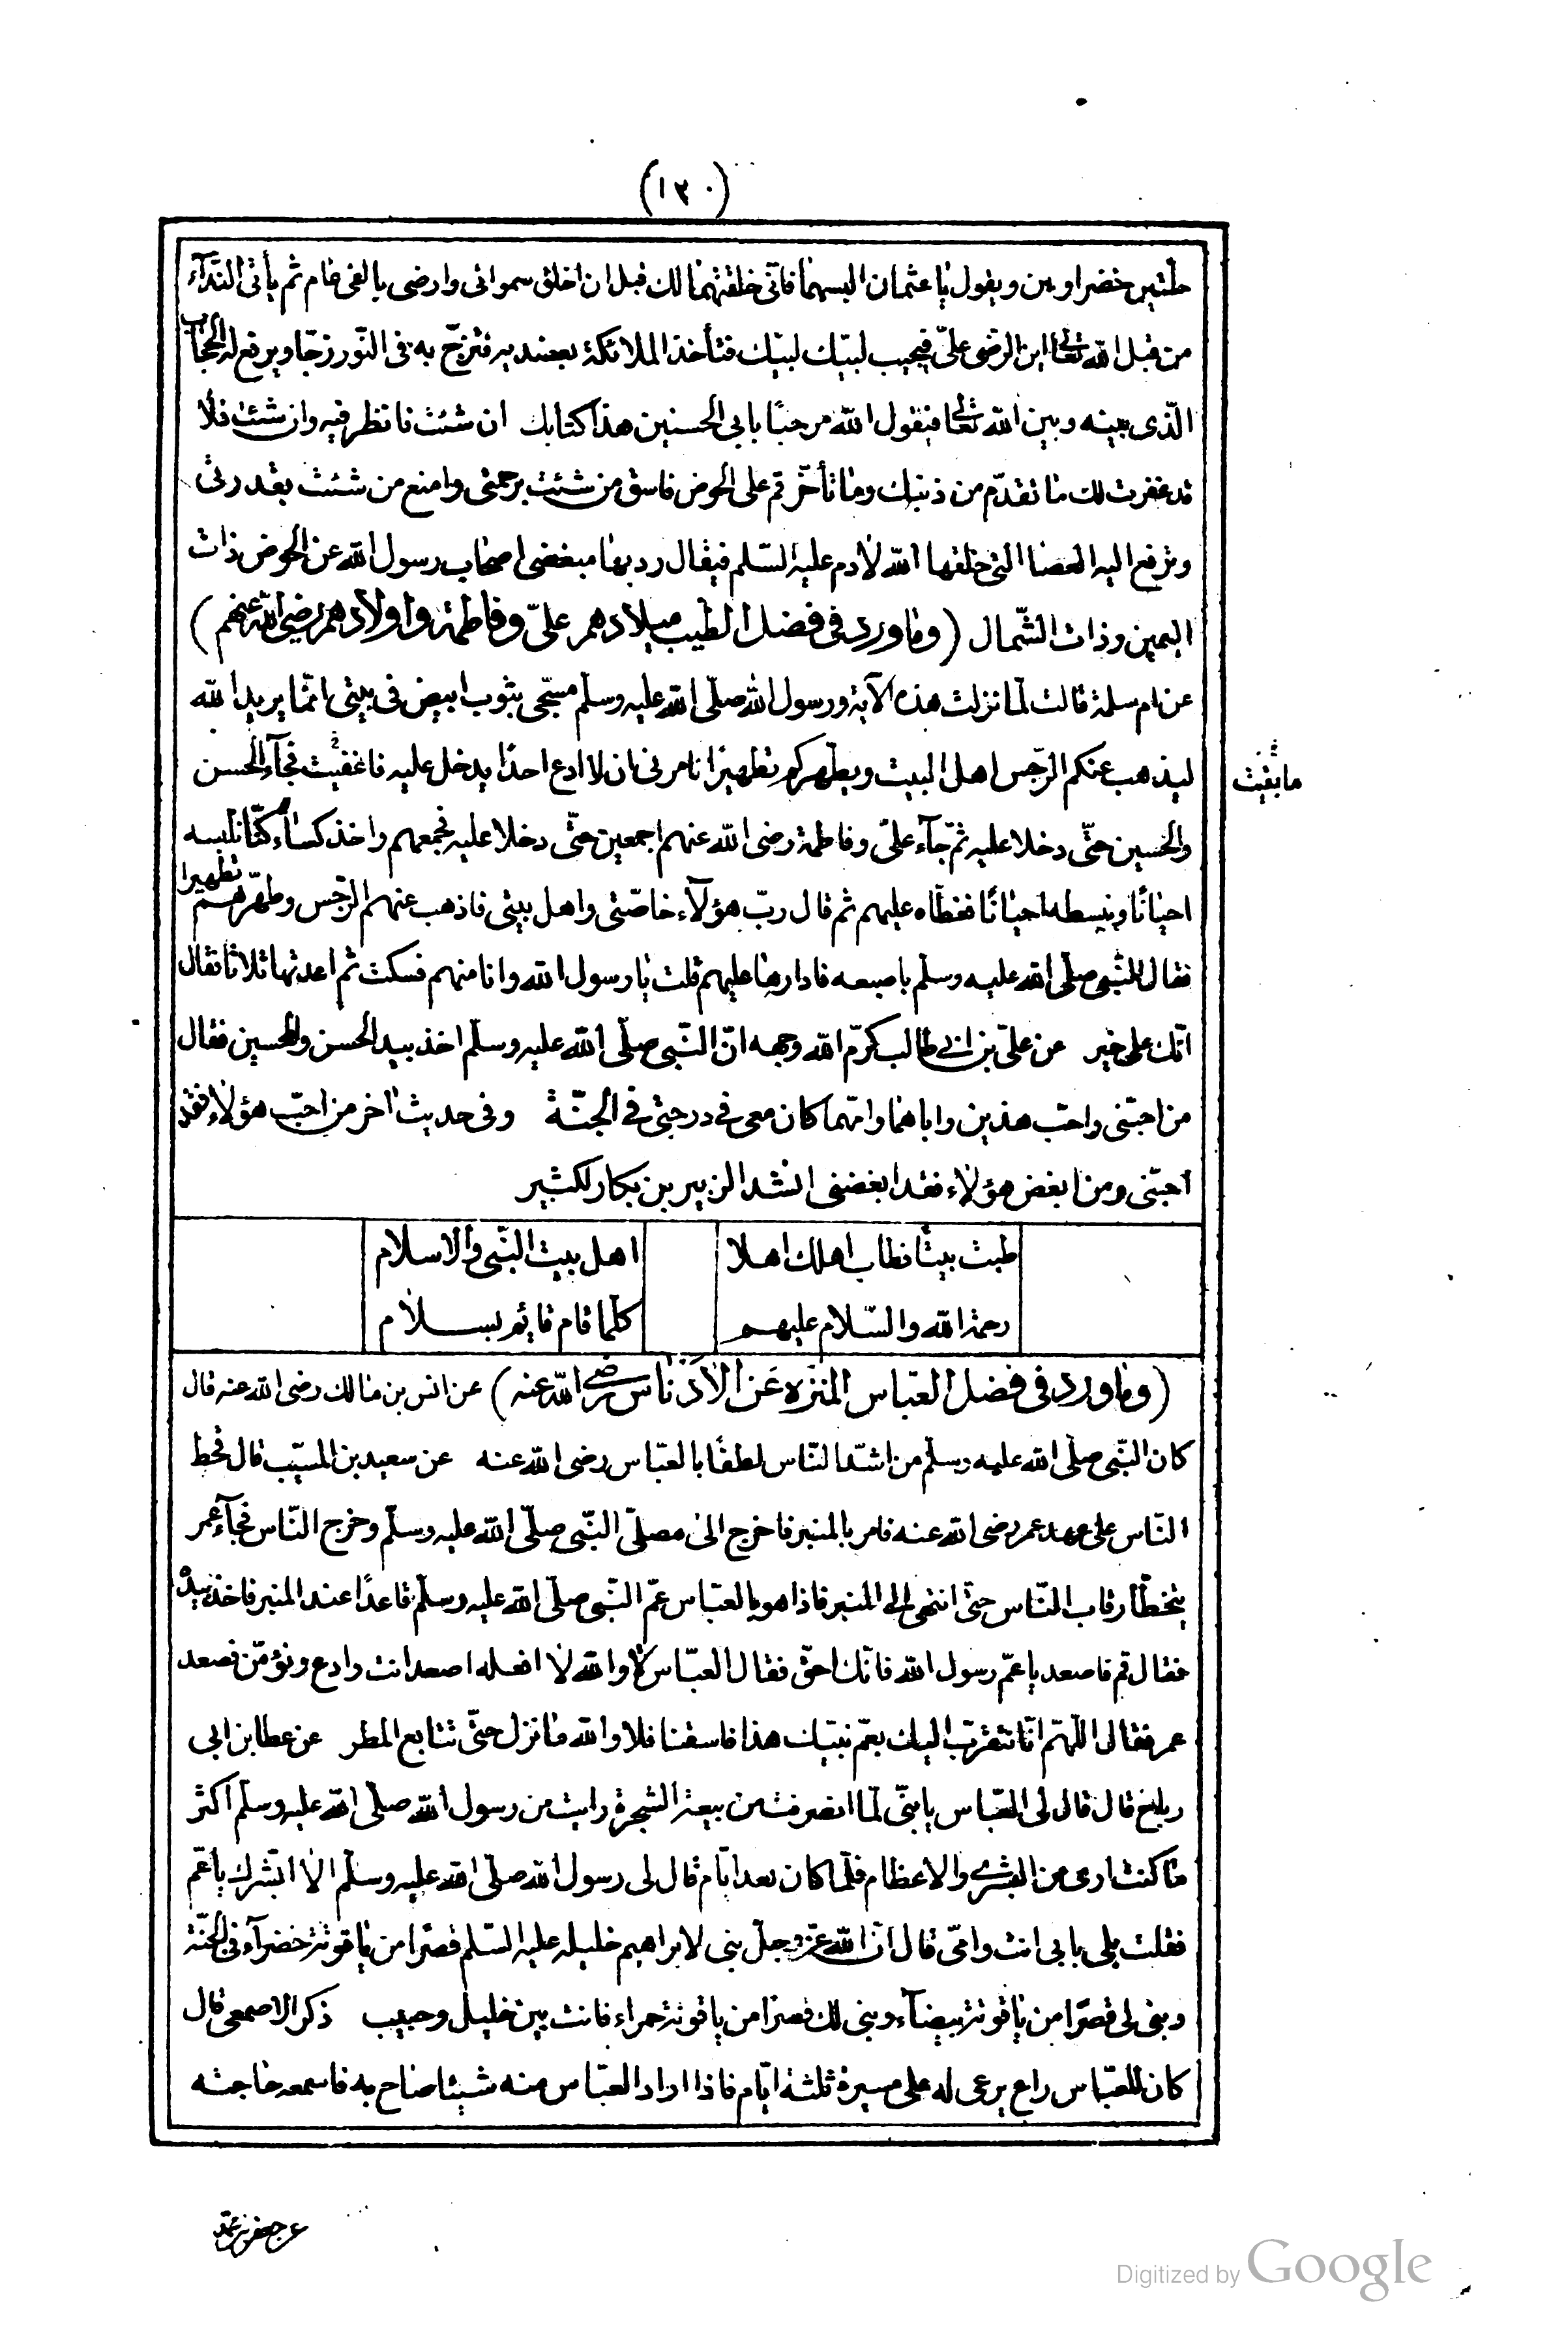 (١٢٠)
حلّتين خضراوين ويقول يا عثمان البسهما فانّى خلقتهما لك قبل ان اخلق سمواتى وارضى بالفى عام ثم يأتى النّدآء
من قبل الله تعالى اين الرضى علىّ فيجيب لبّيك لبّيك فتأخذ الملائكة بعضديه فتزجّ به فى النّور زجّا ويرفع له الحجاب
الّذى بينه وبين الله تعالى فيقول الله مرحبًا بابى الحسنين هذا كتابك ان شئت فانظر فيه وان شئت فلا
قد غفرت لك ما تقدّم من ذنبك وما تأخّر قم على الحوض فاسق من شئت برحمتى وامنع من شئت بقدرتى
وترفع اليه العصا التى خلقها الله لادم عليه السّلم فيقال رد بها مبغضى اصحاب رسول الله عن الحوض ذات
اليمين وذات الشّمال (وما ورد فى فضل الطيب ميلادهم علىّ وفاطمة واولادهم رضى الله عنهم)
عن ام سلمة قالت لمّا نزلت هذه الآية ورسول الله صلّى الله عليه وسلّم مسجّى بثوب ابيض فى بيتى انّما يريد الله
ليذهب عنكم الرّجس اهل البيت ويطهركم تطهيرًا نامرنى ان لا ادع احدًا يدخل عليه فاغفيت فجآء الحسن
مابقيت
والحسين حتّى دخلا عليه ثمّ جآء علىّ وفاطمة رضى الله عنهم اجمعين حتّى دخلا عليه فجمعهم واخذ كساء كنّا نلبسه
احيانًا ونبسطه احيانًا فغطّاه عليهم ثم قال ربّ هؤلآء خاصّتى واهل بيتى فاذهب عنهم الرّجس وطهّرهم تطهيرا
فقال النّبى صلّى الله عليه وسلّم باصبعه فادارها عليهم قلت يا رسول الله وانا منهم فسكت ثم اعدتها ثلاثا فقال
انّك على خير عن علىّ بن ابى طالب كرّم الله وجهه انّ النّبى صلّى الله عليه وسلّم اخذ بيد الحسن والحسين فقال
من احبّنى واحب هذين واباهما وامّهما كان معى فى درجتى فى الجنّة وفى حديث اخر من احبّ هؤلاء فقد
احبّنى ومن ابغض هؤلاء فقد ابغضنى انشد الزبير بن بكار لكثير
طبت بيتًا فطاب اهلك اهلا اهل بيت النّبى والاسلام
رحمة الله والسّلام عليهم كلّما قام قايم بسلام
(وما ورد فى فضل العبّاس المنزه عَن الاَدْناس رضى الله عنه) عن انس بن مالك رضى الله عنه قال
كان النّبى صلّى الله عليه وسلّم من اشدّ النّاس لطفًا بالعبّاس رضى الله عنه عن سعيد بن المسيّب قال قحط
النّاس على عهد عمر رضى الله عنه فامر بالمنبر فاخرج الى مصلّى النّبى صلّى الله عليه وسلّم وخرج النّاس فجآء عمر
يتخطّا رقاب النّاس حتى انتهى الى المنبر فاذا هو بالعبّاس عمّ النّبى صلّى الله عليه وسلّم قاعدًا عند المنبر فاخذ بيده
فقال قم فاصعد يا عمّ رسول الله فانّك احقّ فقال العبّاس لا والله لا افعله اصعد انت وادع ونؤمّن فصعد
عمر فقال اللّهمّ انّا نتقرّب اليك بعمّ نبيّك هذا فاسقنا فلا والله ما نزل حتّى تتابع المطر عن عطا بن ابى
رباح قال قال لى العبّاس يا بنىّ لمّا انصرفت من بيعة الشجرة رايت من رسول الله صلّى الله عليه وسلّم اكثر
ما كنت ارى من البشرى والاعظام فلّما كان بعد ايّام قال لى رسول الله صلّى الله عليه وسلّم الا ابشّرك يا عمّ
فقلت بلى بابى انت وامّى قال انّ الله عزّوجلّ بنى لابراهيم خليله عليه السّلم قصرًا من ياقوتة خضرآء فى الجنّة
وبنى لى قصرًا من ياقوتة بيضآء وبنى لك قصرًا من ياقوتة حمراء فانت بين خليل وحبيب ذكر الاصمعى قال
كان للعبّاس راع يرعى له على مسيرة ثلثة ايّام فاذا اراد العبّاس منه شيئا صاح به فاسمعه حاجته
عن جعفر بن محمّد
Digitized by Google